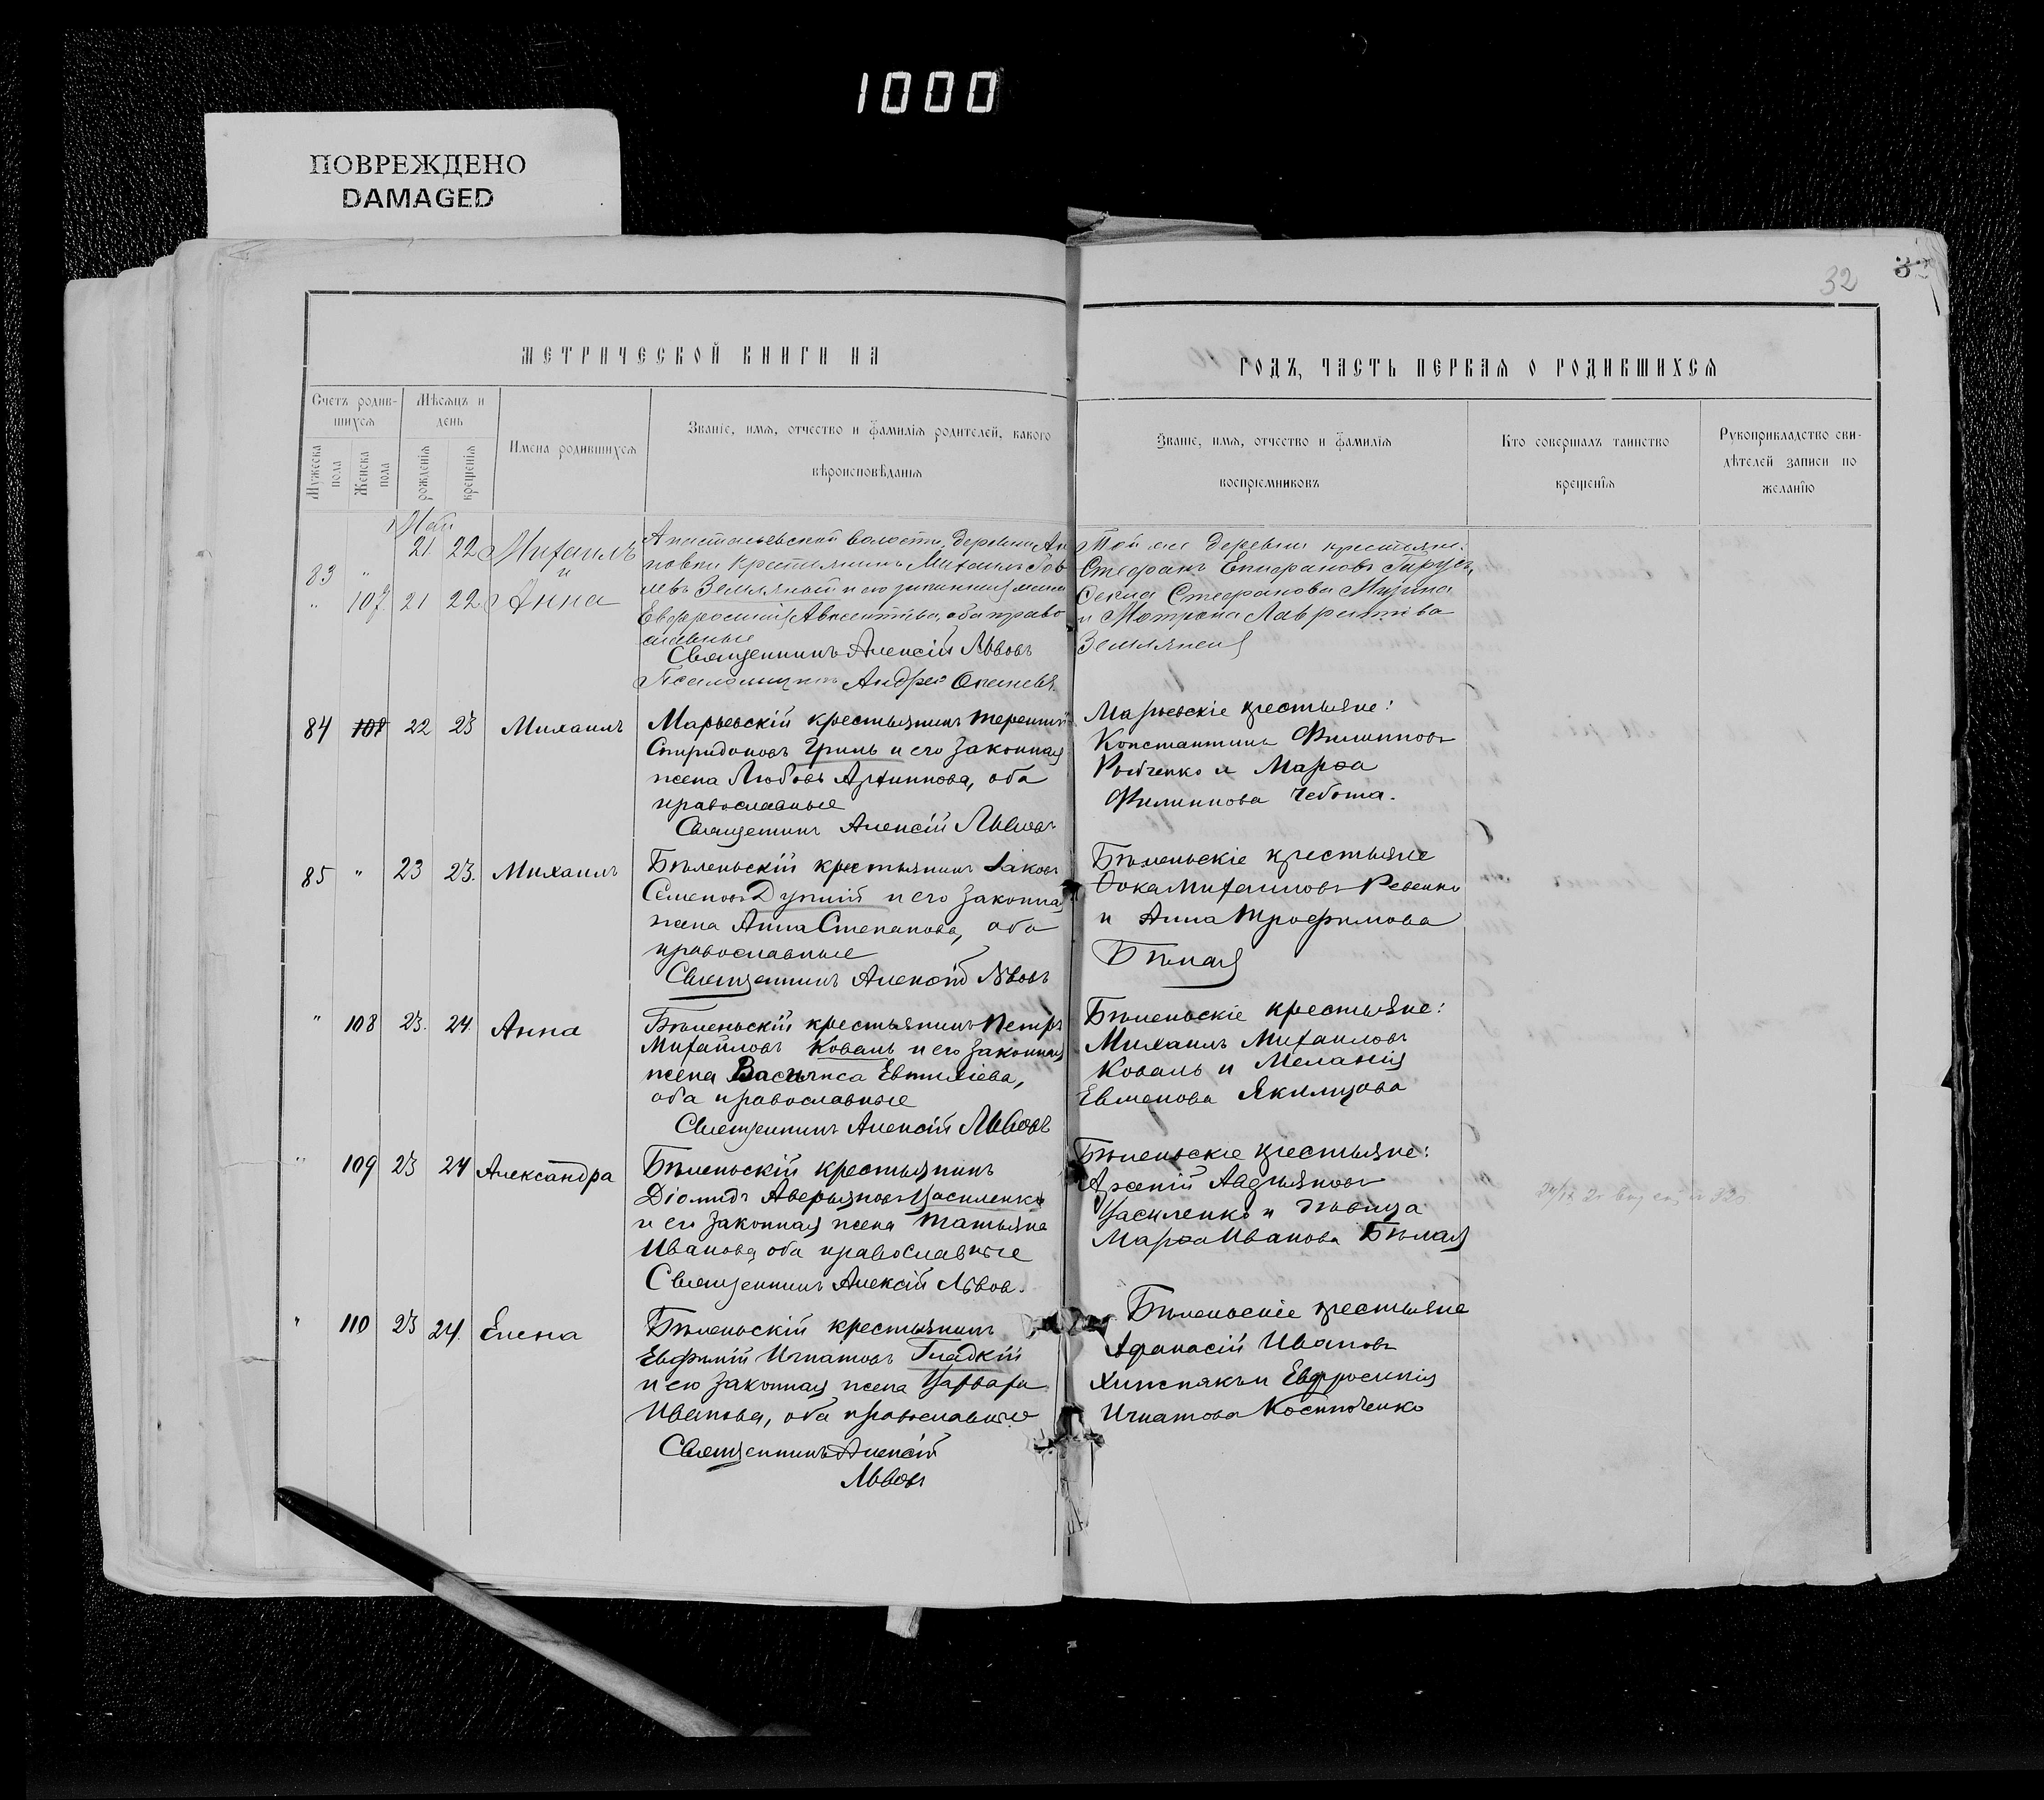 1000
ПОВРЕЖДЕНО
DAMAGED
32
МЕТРИЧЕСКОЙ КНИГИ НА
ГОДЪ, ЧАСТЬ ПЕРВАЯ О РОДИВШИХСЯ
Счетъ родив-
шихся
Мужеска пола
Женска пола
Мѣсяцъ и
день
рожденія
крещенія
Имена родившихся
Званіе, имя, отчество и фамилія родителей, какого
вѣроисповѣданія
Званіе, имя, отчество и фамилія
воспріемниковъ
Кто совершалъ таинство
крещенія
Рукоприкладство сви-
дѣтелей записи по
желанію
Май
83 " 21 22 Михаилъ
и
" 107 21 22 Анна
волости, деревни
крестьянинъ Михаилъ
Земляной и его законная жена
Евфросинія оба право
славные
Священникъ Алексій Львовъ
Псаломщикъ Андрей
Той же деревни крестьяне:
Стефанъ Епифановъ
Стефанова
и Мотрона Лаврентіева
Земляная
84 108 22 23 Михаилъ
Марьевскій крестьянинъ Терентій
Спиридоновъ Гриль и его законная
жена Любовь Архиппова, оба
православные
Священникъ Алексій Львовъ
Марьевскіе крестьяне:
Константинъ Филипповъ
и Марѳа
Филиппова Чебота.
85 " 23 23. Михаилъ
Бѣленьскій крестьянинъ Іаковъ
Семеновъ и его законная
жена Анна Степанова, оба
православные
Священникъ Алексій Львовъ
Бѣленьскіе крестьяне
Ѳока Михаиловъ Ревенко
и Анна Трофимова
Бѣлая
" 108 23. 24. Анна
Бѣленьскій крестьянинъ Петръ
Михаиловъ Коваль и его законная
жена Васса Евтихіева,
оба православные
Священникъ Алексій Львовъ
Бѣленьскіе крестьяне:
Михаилъ Михаиловъ
Коваль и Меланія
Евменова Якимцова
" 109 23 24 Александра
Бѣленьскій крестьянинъ
Діомидъ Аверьяновъ Василенко
и его законная жена Татьяна
Иванова, оба православные
Священникъ Алексій Львовъ.
Бѣленьскіе крестьяне:
Арсеній Авдіяновъ
Василенко и дѣвица
Марѳа Иванова Бѣлая
" 110 23 24. Елена
Бѣленьскій крестьянинъ
Евфимій Игнатовъ Гладкій
и его законная жена Варвара
Иванова, оба православные
Священникъ Алексій
Львовъ
Бѣленьскіе крестьяне
Афанасій Ивановъ
Хижнякъ и Евфросинія
Игнатова